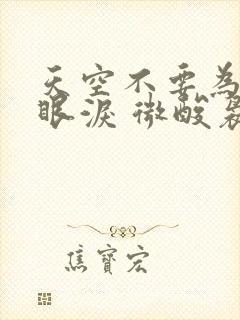 天空不要為
眼淚 微酸襲
焦寶宏